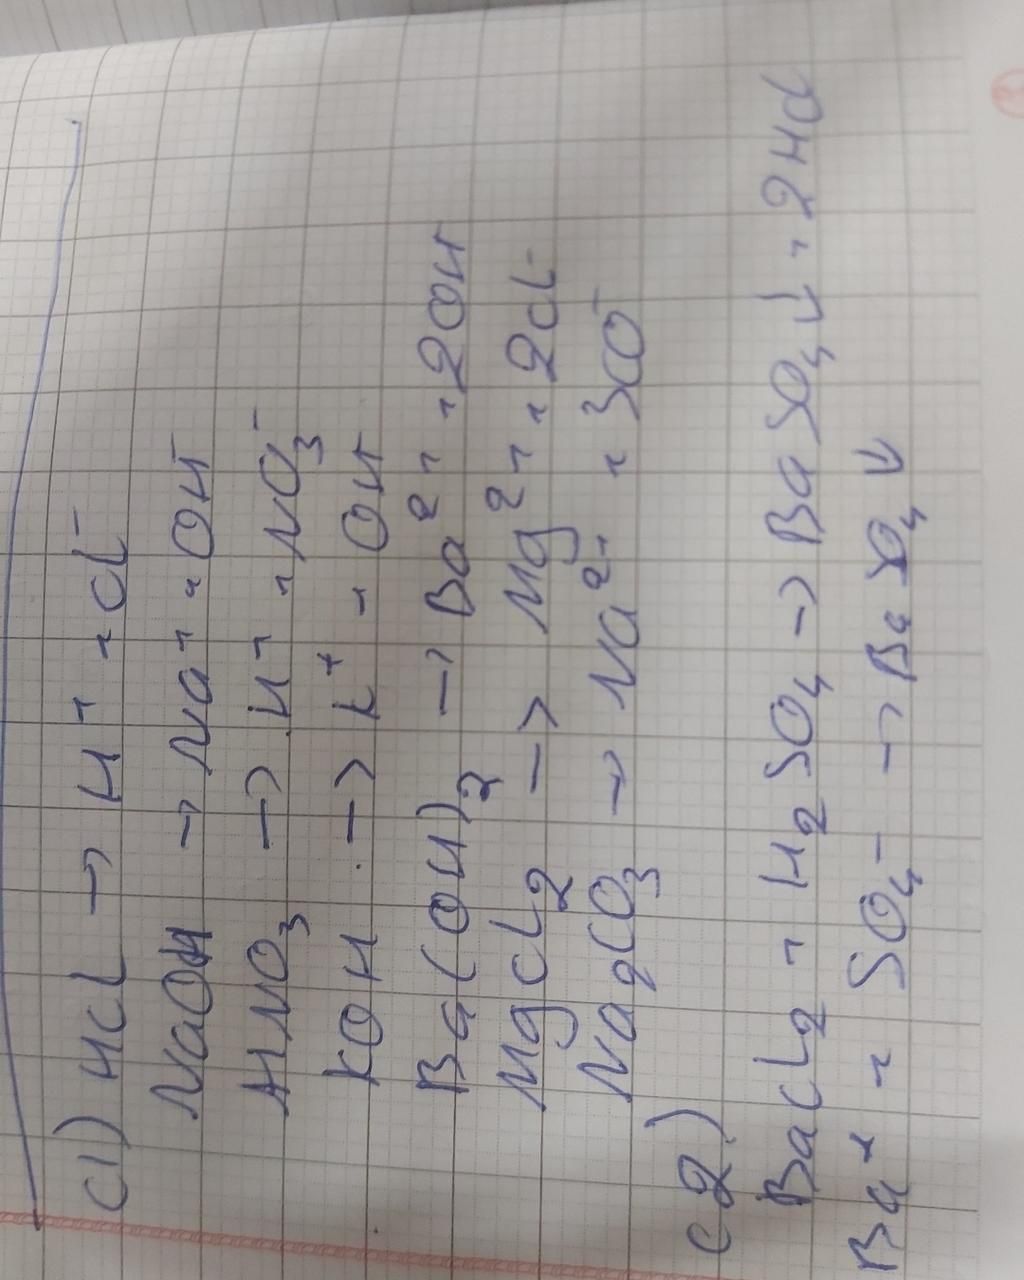 C1) HCl → H⁺ + Cl⁻
NaOH → Na⁺ + OH⁻
HNO₃ → H⁺ + NO₃⁻
KOH → K⁺ + OH⁻
Ba(OH)₂ → Ba²⁺ + 2OH⁻
MgCl₂ → Mg²⁺ + 2Cl⁻
Na₂CO₃ → Na²⁺ + 3CO⁻
C2)
BaCl₂ + H₂SO₄ → BaSO₄↓ + 2HCl
Ba⁺ + SO₄⁻ → BaSO₄↓